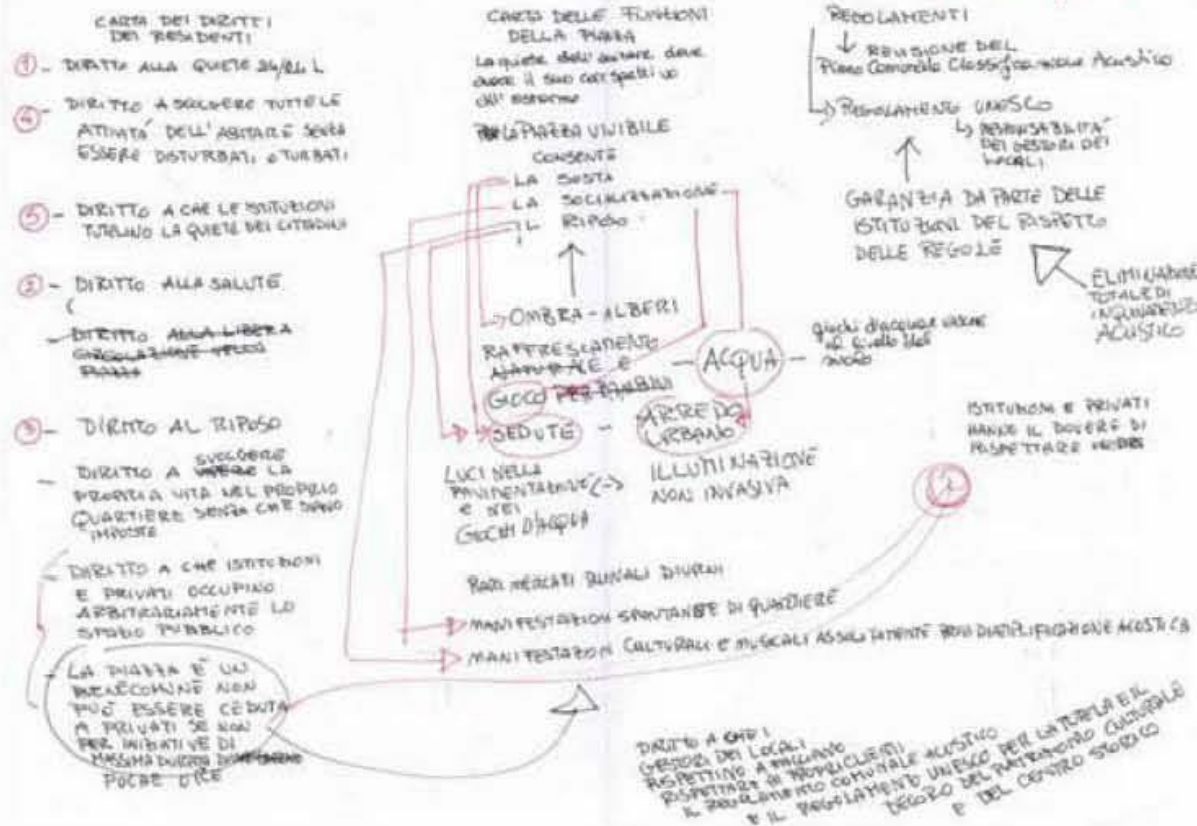 CARTA DEI DIRITTI
DEI RESIDENTI
① - DIRITTO ALLA QUIETE 24/24 L
④ - DIRITTO A SVOLGERE TUTTE LE
ATTIVITÀ DELL'ABITARE SENZA
ESSERE DISTURBATI o TURBATI
⑤ - DIRITTO A CHE LE ISTITUZIONI
TUTELINO LA QUIETE DEI CITTADINI
② - DIRITTO ALLA SALUTE
- DIRITTO ALLA LIBERA
CIRCOLAZIONE
PIAZZA
③ - DIRITTO AL RIPOSO
- DIRITTO A SVOLGERE LA
PROPRIA VITA NEL PROPRIO
QUARTIERE SENZA CHE SIANO
IMPOSTE
- DIRITTO A CHE ISTITUZIONI
E PRIVATI OCCUPINO
ARBITRARIAMENTE LO
SPAZIO PUBBLICO
- LA PIAZZA È UN
BENE COMUNE NON
PUÒ ESSERE CEDUTA
A PRIVATI SE NON
PER INIZIATIVE DI
MASSIMA DURATA DI
POCHE ORE
CARTA DELLE FUNZIONI
DELLA PIAZZA
La quiete dell'abitare deve
avere il suo corrispettivo
all'esterno
LA PIAZZA VIVIBILE
CONSENTE
LA SOSTA
LA SOCIALIZZAZIONE
IL RIPOSO
OMBRA - ALBERI
RAFFRESCAMENTO
NATURALE E
GIOCO PER BAMBINI
- ACQUA -
giochi d'acqua
al livello del
suolo
SEDUTE - ARREDO
URBANO
LUCI NELLA
PAVIMENTAZIONE
E NEI
GIOCHI D'ACQUA
ILLUMINAZIONE
NON INVASIVA
RARI MERCATI RIONALI DIURNI
MANIFESTAZIONI SPONTANEE DI QUARTIERE
MANIFESTAZIONI CULTURALI E MUSICALI ASSOLUTAMENTE AMPLIFICAZIONE ACUSTICA
REGOLAMENTI
REVISIONE DEL
Piano Comunale Classificazione Acustico
REGOLAMENTO UNESCO
RESPONSABILITÀ
DEI GESTORI DEI
LOCALI
GARANZIA DA PARTE DELLE
ISTITUZIONI DEL RISPETTO
DELLE REGOLE
ELIMINAZIONE
TOTALE DI
INQUINAMENTO
ACUSTICO
ISTITUZIONI E PRIVATI
HANNO IL DOVERE DI
RISPETTARE
DIRITTO A CHE I
GESTORI DEI LOCALI
RISPETTINO E FACCIANO
RISPETTARE AI PROPRI CLIENTI
IL REGOLAMENTO COMUNALE ACUSTICO
E IL REGOLAMENTO UNESCO PER LA TUTELA E IL
DECORO DEL PATRIMONIO CULTURALE
E DEL CENTRO STORICO